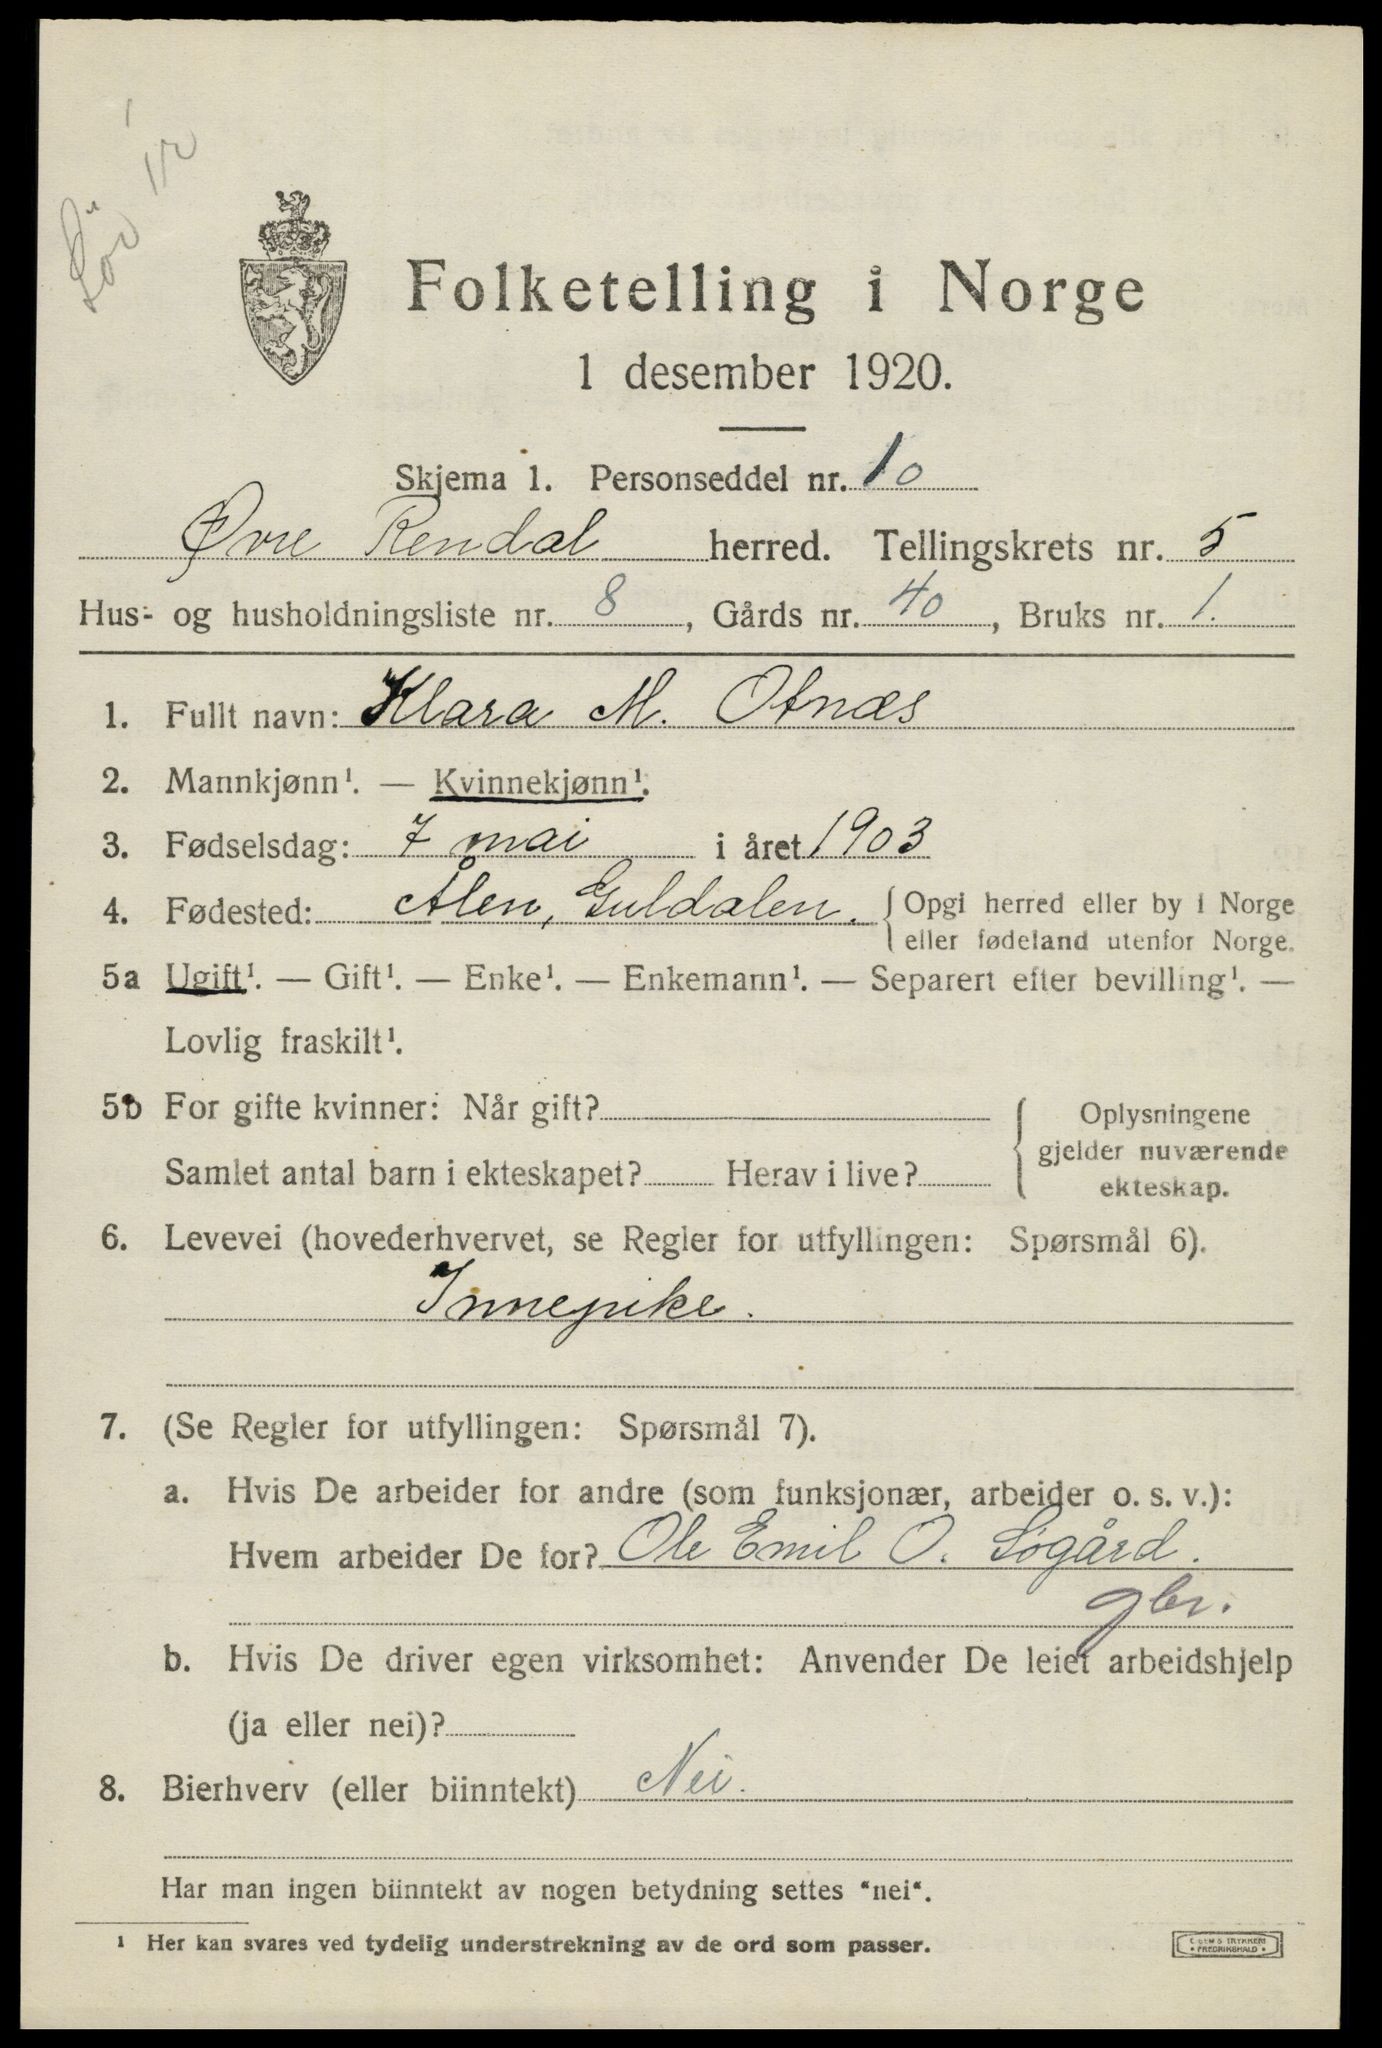 Folketelling i Norge
1 desember 1920.
Skjema 1. Personseddel nr. 10
Øvre Rendal herred. Tellingskrets nr. 5
Hus- og husholdningsliste nr. 8, Gårds nr. 40, Bruks nr. 1.
1. Fullt navn: Klara M. Otnæs
2. Mannkjønn¹. — Kvinnekjønn¹.
3. Fødselsdag: 7 mai i året 1903
4. Fødested: Ålen, Guldalen. { Opgi herred eller by i Norge
eller fødeland utenfor Norge.
5a Ugift¹. — Gift¹. — Enke¹. — Enkemann¹. — Separert efter bevilling¹. —
Lovlig fraskilt¹.
5b For gifte kvinner: Når gift?
Samlet antal barn i ekteskapet? Herav i live?
{ Oplysningene
gjelder nuværende
ekteskap.
6. Levevei (hovederhvervet, se Regler for utfyllingen: Spørsmål 6).
Innepike.
7. (Se Regler for utfyllingen: Spørsmål 7).
a. Hvis De arbeider for andre (som funksjonær, arbeider o. s. v.):
Hvem arbeider De for? Ole Emil O. Søgård.
gbr.
b. Hvis De driver egen virksomhet: Anvender De leiet arbeidshjelp
(ja eller nei)?
8. Bierhverv (eller biinntekt) Nei.
Har man ingen biinntekt av nogen betydning settes "nei".
¹ Her kan svares ved tydelig understrekning av de ord som passer.
TRYKKERI
• FREDRIKSHALD •